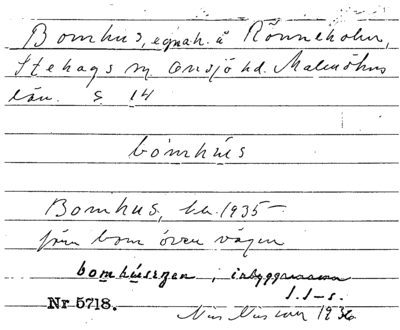 Bomhus, egnah. å Rönneholm,
Stehags sn, Onsjö hd. Malmöhus
län. S 14
bómhùs
Bomhus, 1935
från bom över vägen
bomhusingen, inbyggarna
I. I-s.
Nr 5718.
1936